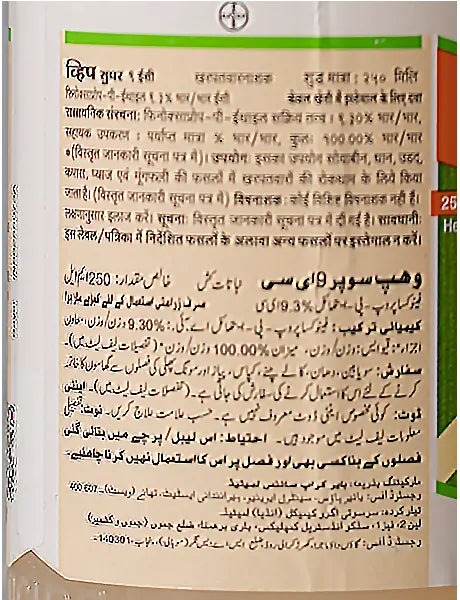 व्हिप सुपर ९ ईसी खरपतवारनाशक शुद्ध मात्रा : २५० मिलि
फिनोक्साप्रॉप-पी-ईथाइल ९.३% भार/भार ईसी केवल खेती में इस्तेमाल के लिए दवा
रासायनिक संरचना: फिनोक्साप्रॉप-पी-ईथाइल सक्रिय तत्व : ९.३०% भार/भार,
सहायक उपकरण : पर्याप्त मात्रा % भार/भार, कुल: 100.00% भार/भार
*(विस्तृत जानकारी सूचना पत्र में)। उपयोग: इसका उपयोग सोयाबीन, धान, उड़द,
कपास, प्याज एवं मूंगफली की फसलों में खरपतवारों की रोकथाम के लिये किया
जाता है। (विस्तृत जानकारी सूचना पत्र में) विषनाशक: कोई विशिष्ट विषनाशक नहीं है।
लक्षणानुसार इलाज करें। सूचना: विस्तृत जानकारी सूचना पत्र में दी गई है। सावधानी:
इस लेबल/पत्रिका में निर्देशित फसलों के अलावा अन्य फसलों पर इस्तेगाल न करें।
وهپ سوپر 9 ای سی نباتات کش خالص مقدار: 250 ایم ایل
فینوکساپروپ-پی-ایتھائل 9.3% ای سی صرف زراعتی استعمال کے لئے
کیمیائی ترکیب: فینوکساپروپ-پی-ایتھائل اے.آئی.: 9.30% وزن/وزن، معاون
اجزاء: کیو ایس: وزن/وزن، میزان 100.00% وزن/وزن* (تفصیلات لیف لیٹ میں)۔
سفارش: سویابین، دھان، کالے چنے، کپاس، پیاز اور مونگ پھلی کی فصلوں سے گھاسوں کا خاتمہ
کرنے کے لئے اس کا استعمال کرنے کی سفارش کی جاتی ہے۔ (تفصیلات لیف لیٹ میں)۔ اینٹی
ڈوٹ: کوئی مخصوص اینٹی ڈوٹ معروف نہیں ہے۔ حسب علامت علاج کریں۔ نوٹ: تفصیلی
معلومات لیف لیٹ میں موجود ہیں۔ احتیاط: اس لیبل/پرچے میں بتائی گئی
فصلوں کے بنا کسی بھی اور فصل پر اس کا استعمال نہیں کرنا چاہئیے۔
مارکیٹنگ بذریعہ: بایر کراپ سائنس لمیٹیڈ
رجسٹرڈ آفس: بایر ہاؤس، سینٹرل ایوینیو، ہیرانندانی ایسٹیٹ، تھانے (ویسٹ)- 400 607
تیار کردہ: سرسوتی اگرو کیمیکل (انڈیا) لمیٹیڈ
لین 2، فیز 1، سڈکو انڈسٹریل کمپلیکس، باری برھمنا، ضلع جموں (جموں و کشمیر)
رجسٹرڈ آفس: پنجاب -140301
25
He